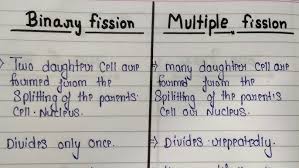 Binary fission
Two daughter cell are
formed from the
Splitting of the parents
cell. Nucleus.
Divides only once.
Multiple fission
many daughter cell are
formed from the
Splitting of the parent's
cell or Nucleus.
Divides repeatedly.